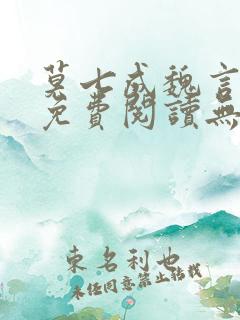 莫七成魏言
免費閱讀無
東名利也
未經同意禁止轉載